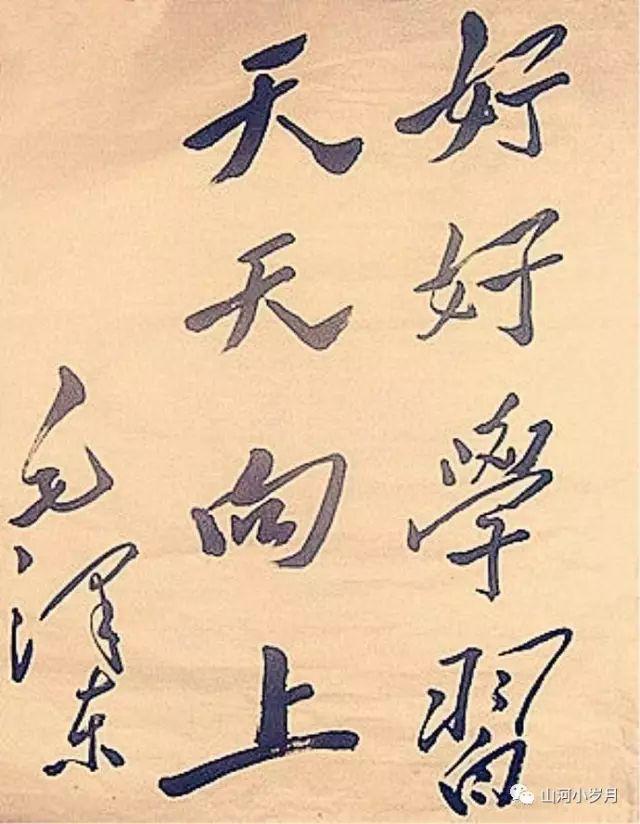 好好學習
天天向上
毛泽东
山河小岁月